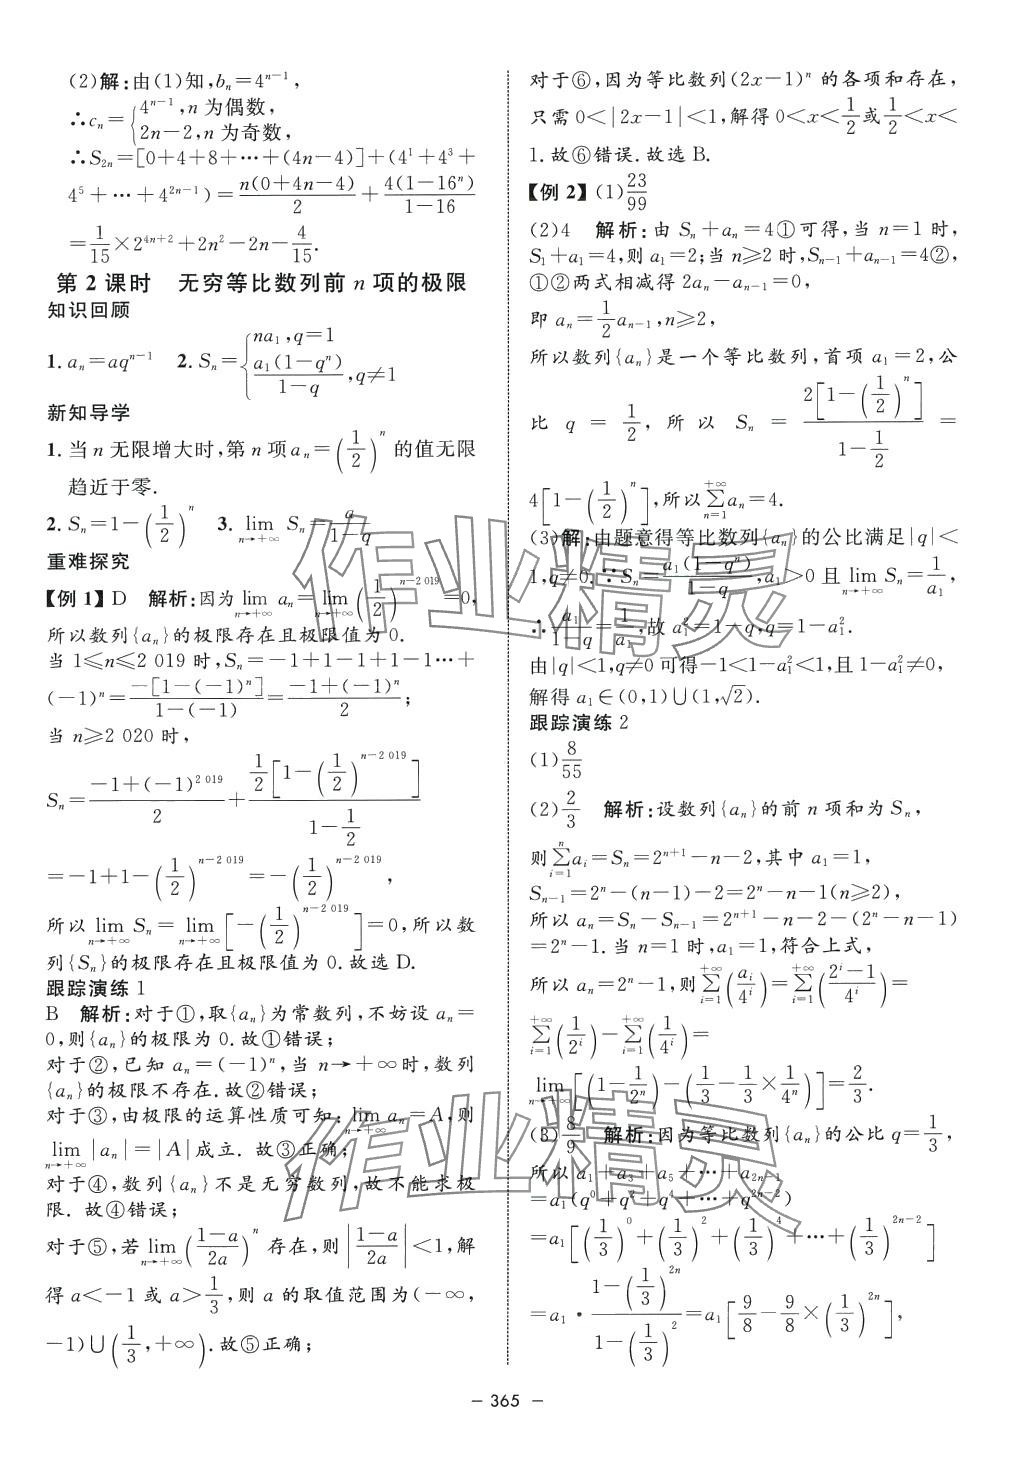 (2)解:由(1)知,bₙ=4ⁿ⁻¹,
∴cₙ={4ⁿ⁻¹,n 为偶数,
2n-2,n 为奇数,
∴S₂ₙ=[0+4+8+⋯+(4n-4)]+(4¹+4³+
4⁵+⋯+4²ⁿ⁻¹)=n(0+4n-4)/2+4(1-16ⁿ)/(1-16)
=1/15×2⁴ⁿ⁺²+2n²-2n-4/15.
第 2 课时 无穷等比数列前 n 项的极限
知识回顾
1. aₙ=aqⁿ⁻¹ 2. Sₙ={na₁,q=1
a₁(1-qⁿ)/(1-q),q≠1
新知导学
1. 当 n 无限增大时,第 n 项 aₙ=(1/2)ⁿ 的值无限
趋近于零.
2. Sₙ=1-(1/2)ⁿ 3. lim(n→+∞) Sₙ=a/(1-q)
重难探究
【例 1】D 解析:因为 lim(n→+∞) aₙ=lim(n→+∞)(1/2)^(n-2 019)=0,
所以数列{aₙ}的极限存在且极限值为 0.
当 1≤n≤2 019 时,Sₙ=-1+1-1+1-1⋯+
(-1)ⁿ=-[1-(-1)ⁿ]/(1-(-1))=(-1+(-1)ⁿ)/2;
当 n≥2 020 时,
Sₙ=(-1+(-1)^(2 019))/2+(1/2[1-(1/2)^(n-2 019)])/(1-1/2)
=-1+1-(1/2)^(n-2 019)=-(1/2)^(n-2 019),
所以 lim(n→+∞) Sₙ=lim(n→+∞)[-(1/2)^(n-2 019)]=0,所以数
列{Sₙ}的极限存在且极限值为 0.故选 D.
跟踪演练 1
B 解析:对于①,取{aₙ}为常数列,不妨设 aₙ=
0,则{aₙ}的极限为 0.故①错误;
对于②,已知 aₙ=(-1)ⁿ,当 n→+∞时,数列
{aₙ}的极限不存在.故②错误;
对于③,由极限的运算性质可知:lim(n→+∞) aₙ=A,则
lim(n→+∞)|aₙ|=|A|成立. 故③正确;
对于④,数列{aₙ}不是无穷数列,故不能求极
限. 故④错误;
对于⑤,若 lim(n→+∞)((1-a)/2a)ⁿ 存在,则|(1-a)/2a|<1,解
得 a<-1 或 a>1/3,则 a 的取值范围为(-∞,
-1)∪(1/3,+∞).故⑤正确;
对于⑥,因为等比数列(2x-1)ⁿ 的各项和存在,
只需 0<|2x-1|<1,解得 0<x<1/2或1/2<x<
1.故⑥错误.故选 B.
【例 2】(1)23/99
(2)4 解析:由 Sₙ+aₙ=4①可得,当 n=1 时,
S₁+a₁=4,则 a₁=2;当 n≥2 时,Sₙ₋₁+aₙ₋₁=4②,
①②两式相减得 2aₙ-aₙ₋₁=0,
即 aₙ=1/2aₙ₋₁,n≥2,
所以数列{aₙ}是一个等比数列,首项 a₁=2,公
比 q=1/2,所以 Sₙ=(2[1-(1/2)ⁿ])/(1-1/2)=
4[1-(1/2)ⁿ],所以∑(n=1,+∞)aₙ=4.
(3)解:由题意得等比数列{aₙ}的公比满足|q|<
1,q≠0.∵Sₙ=a₁(1-qⁿ)/(1-q),a₁>0 且 lim(n→+∞) Sₙ=1/a₁,
∴a₁/(1-q)=1/a₁,故 a₁²=1-q,q=1-a₁².
由|q|<1,q≠0 可得-1<1-a₁²<1,且 1-a₁²≠0,
解得 a₁∈(0,1)∪(1,√2).
跟踪演练 2
(1)8/55
(2)2/3 解析:设数列{aₙ}的前 n 项和为 Sₙ,
则∑(i=1,n)aᵢ=Sₙ=2ⁿ⁺¹-n-2,其中 a₁=1,
Sₙ₋₁=2ⁿ-(n-1)-2=2ⁿ-n-1(n≥2),
所以 aₙ=Sₙ-Sₙ₋₁=2ⁿ⁺¹-n-2-(2ⁿ-n-1)
=2ⁿ-1.当 n=1 时,a₁=1,符合上式,
所以 aₙ=2ⁿ-1,则∑(i=1,+∞)(aᵢ/4ⁱ)=∑(i=1,+∞)((2ⁱ-1)/4ⁱ)=
∑(i=1,+∞)(1/2ⁱ)-∑(i=1,+∞)(1/4ⁱ)=
lim(n→+∞)[(1-1/2ⁿ)-(1/3-1/3×1/4ⁿ)]=2/3.
(3)8/9 解析:因为等比数列{aₙ}的公比 q=1/3,
所以 a₁+a₃+a₅+⋯+a₂ₙ₋₁
=a₁(q⁰+q²+q⁴+⋯+q²ⁿ⁻²)
=a₁[(1/3)⁰+(1/3)²+(1/3)⁴+⋯+(1/3)²ⁿ⁻²]
=a₁·(1-(1/3)²ⁿ)/(1-(1/3)²)=a₁[9/8-9/8×(1/3)²ⁿ],
- 365 -
作业精灵
作业精灵